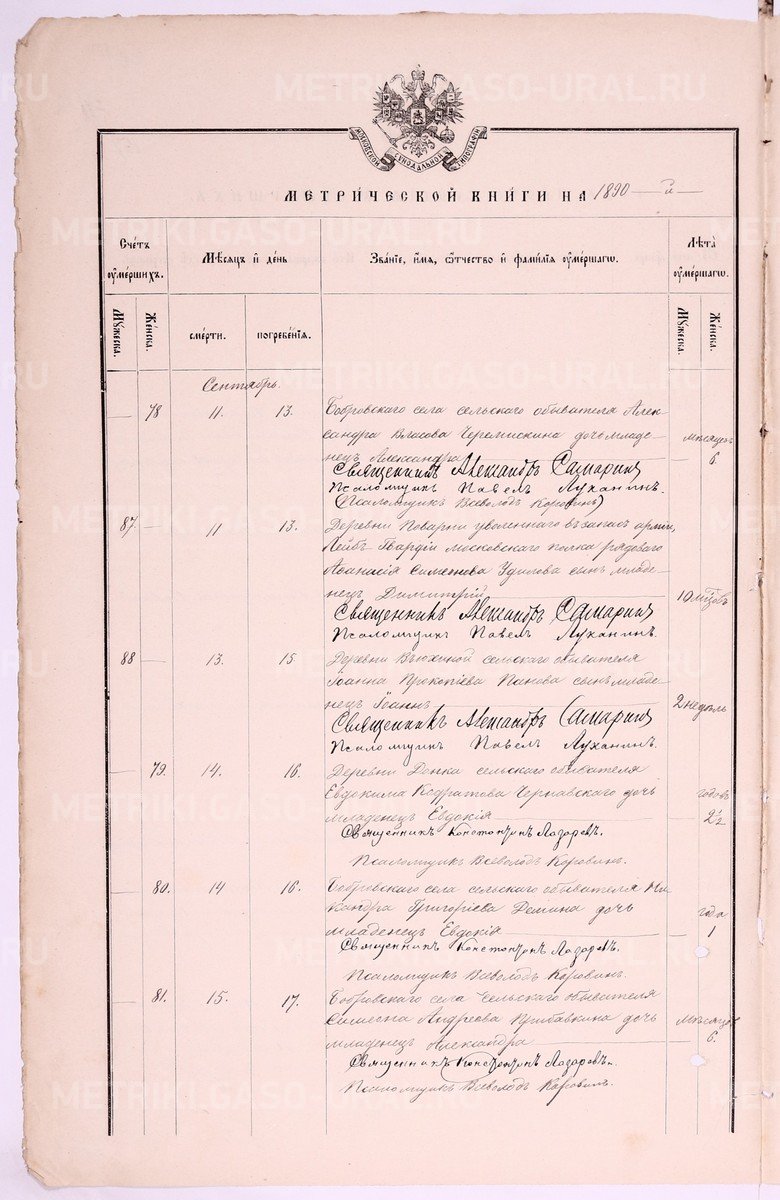 METRIKI.GASO-URAL.RU
МОСКОВСКОЙ СѴНОДАЛЬНОЙ ТИПОГРАФІИ
МЕТРИ́ЧЕСКОЙ КНИ́ГИ НА 1890 й
Счéтъ ᲂу҆мéршихъ. Мѣ́сяцъ и҆ дéнь Звáнїе, и҆́мѧ, ѻ҆́тчество и҆ фами́лїѧ ᲂу҆мéршагѡ. Лѣ́та ᲂу҆мéршагѡ.
Мꙋ́жеска. Жéнска. смéрти. погребéнїѧ. Мꙋ́жеска. Жéнска.
Сентябрь.
78 11. 13. Бобровскаго села сельскаго обывателя Алек-
сандра Власова Черемискина дочь младе-
нецъ Александра мѣсяцевъ 6.
Священникъ Александръ Самаринъ
Псаломщикъ Павелъ Луханинъ.
(Псаломщикъ Всеволодъ Коровинъ)
87. 11 13. Деревни Поварни уволеннаго въ запасъ арміи,
Лейбъ Гвардіи Московскаго полка рядоваго
Аѳанасія Симеонова Удилова сынъ младе-
нецъ Димитрій 10 мѣсцовъ
Священникъ Александръ Самаринъ
Псаломщикъ Павелъ Луханинъ.
88 13. 15 Деревни Вьюхиной сельскаго обывателя
Іоанна Прокопіева Панова сынъ младе-
нецъ Іоаннъ 2 недѣль
Священникъ Александръ Самаринъ
Псаломщикъ Павелъ Луханинъ.
79. 14. 16. Деревни Донка сельскаго обывателя
Евдокима Кодратова Чернавскаго дочь
младенецъ Евдокія годовъ 2 1/2
Священникъ Константинъ Лазаревъ.
Псаломщикъ Всеволодъ Коровинъ.
80. 14 16. Бобровскаго села сельскаго обывателя Ни-
кандра Григоріева Демина дочь
младенецъ Евдокія года 1
Священникъ Константинъ Лазаревъ.
Псаломщикъ Всеволодъ Коровинъ.
81. 15. 17. Бобровскаго села сельскаго обывателя
Симеона Андреева Прибавкина дочь
младенецъ Александра мѣсяцевъ 6.
Священникъ Константинъ Лазаревъ.
Псаломщикъ Всеволодъ Коровинъ.